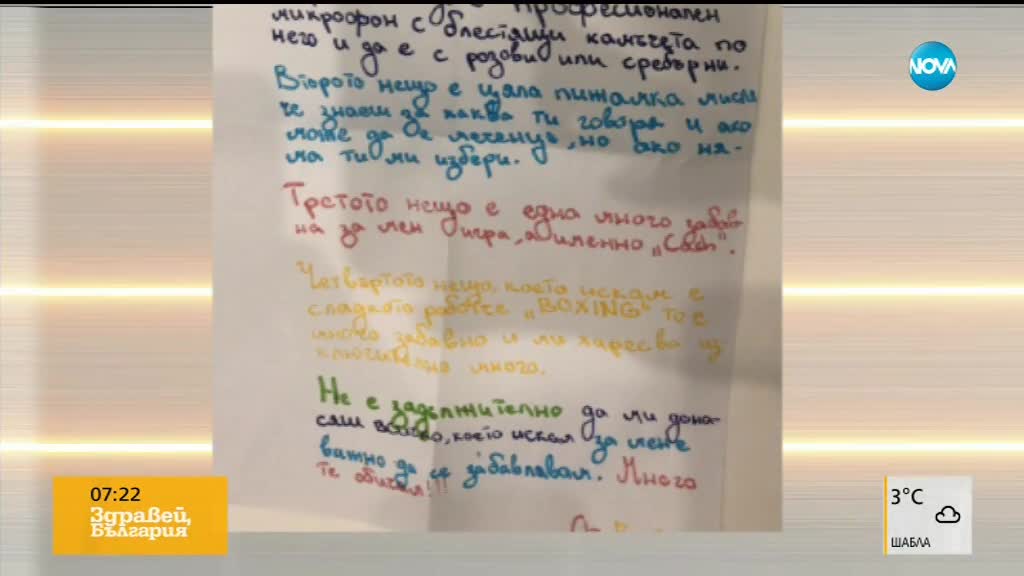 професионален
микрофон с блестящи камъчета по
него и да е с розови или сребърни.
Второто нещо е цяла пижамка мисля
че знаеш за каква ти говоря и ако
може да бе меченце, но ако ня-
ма ти ми избери.
Третото нещо е една много забав-
на за мен игра, а именно „Cash".
Четвъртото нещо, което искам е
сладкото роботче „BOXING" то е
много забавно и ми харесва из
ключително много.
Не е задължително да ми дона-
сяш всичко, което искам за мене
важно да се забавлявам. Много
те обичам!!!
От
NOVA
07:22
Здравей,
България
3°C
ШАБЛА